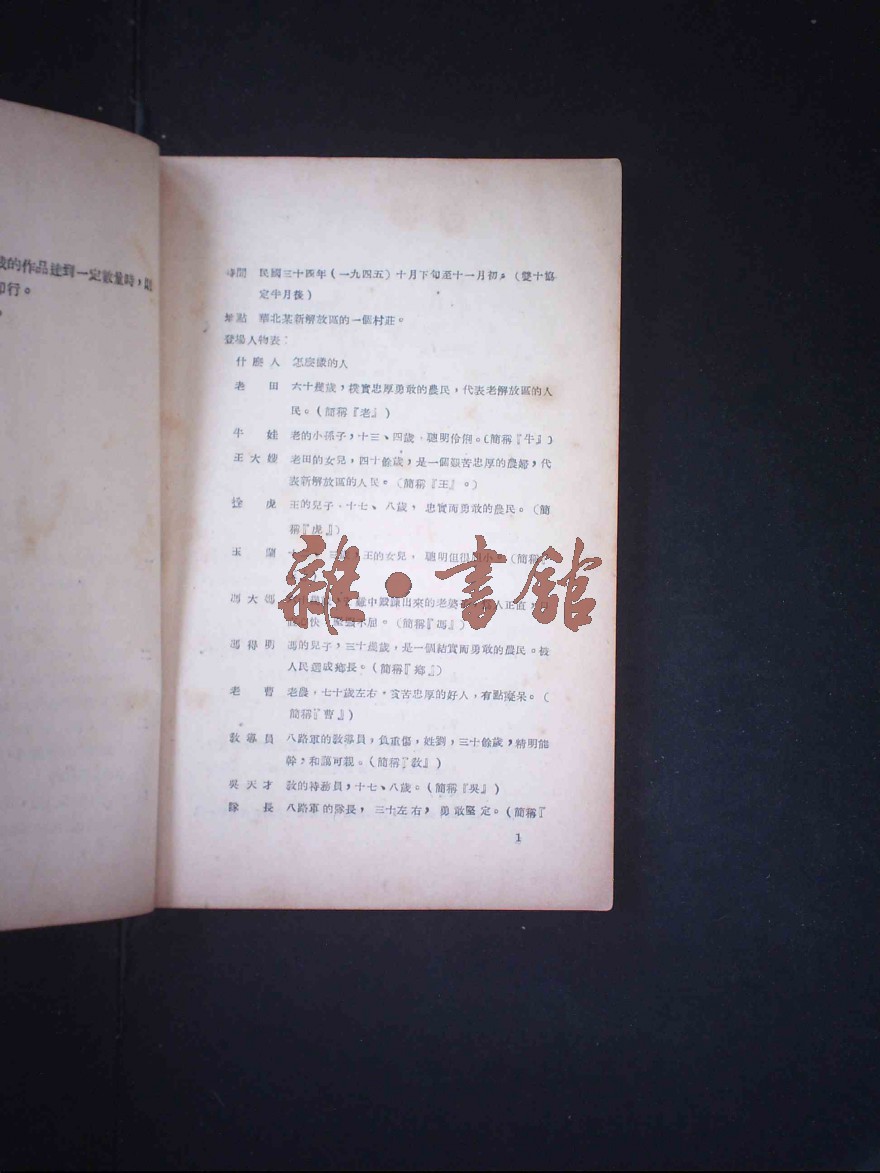 的作品達到一定數量時，
印行。
時間　民國三十四年（一九四五）十月下旬至十一月初。（雙十協
定半月後）
地點　華北某新解放區的一個村莊。
登場人物表：
什麽人　怎麽樣的人
老　田　六十幾歲，樸實忠厚勇敢的農民，代表老解放區的人
民。（簡稱『老』）
牛　娃　老的小孫子，十三、四歲，聰明伶俐。（簡稱『牛』）
王大嫂　老田的女兒，四十餘歲，是一個艱苦忠厚的農婦，代
表新解放區的人民。（簡稱『王』。）
拴　虎　王的兒子，十七、八歲，忠實而勇敢的農民。（簡
稱『虎』）
玉　蘭　王的女兒，聰明但（簡稱『
馮大媽　中鍛鍊出來的老婆　人正直，
快　（簡稱『馮』）
馮得明　馮的兒子，三十幾歲，是一個結實而勇敢的農民。被
人民選成鄉長。（簡稱『鄉』）
老　曹　老農，七十歲左右，貧苦忠厚的好人，有點癡呆。（
簡稱『曹』）
教導員　八路軍的教導員，負重傷，姓劉，三十餘歲，精明能
幹，和藹可親。（簡稱『教』）
吳天才　教的特務員，十七、八歲。（簡稱『吳』）
隊　長　八路軍的隊長，三十左右，勇敢堅定。（簡稱『
1
雜・書館